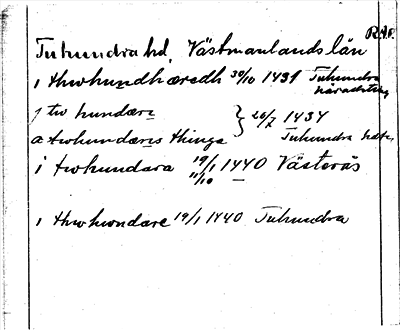 R.A.P.
Tuhundra hd, Västmanlands län
i thwhundhæredh 30/10 1431 Tuhundra
häradsting
j tw hundære } 20/7 1434
a twhundæris thinge Tuhundra
i twhundara 19/1 1440 Västerås
11/10
i thwhwndare 19/1 1440 Tuhundra